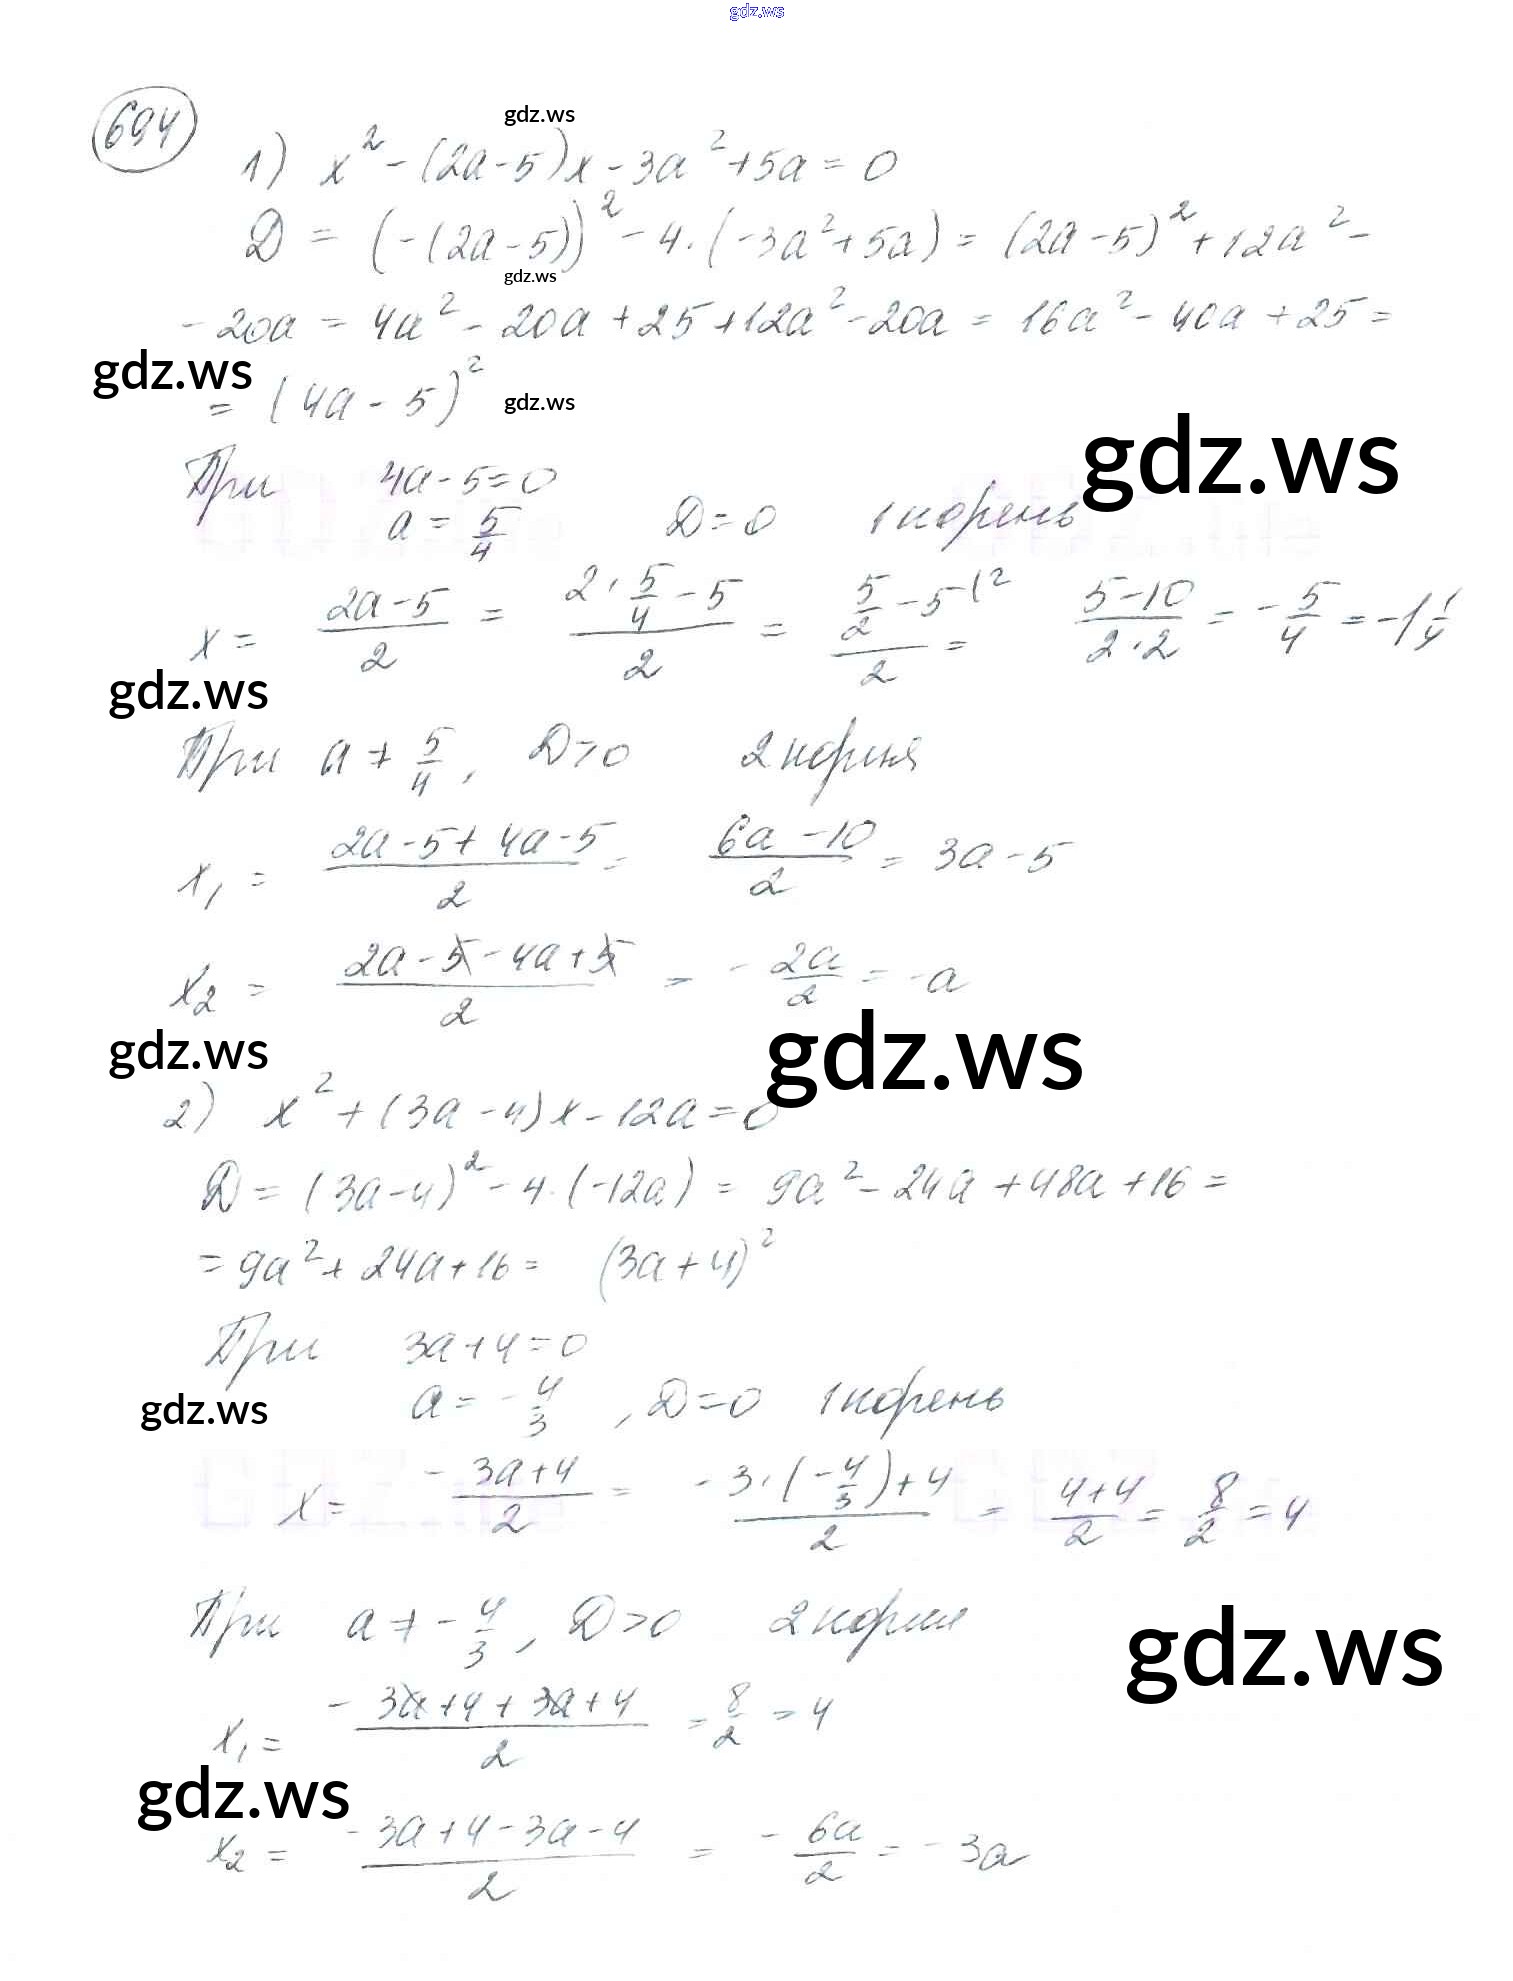 gdz.ws
694
gdz.ws
1) x² - (2a - 5)x - 3a² + 5a = 0
D = (-(2a - 5))² - 4 · (-3a² + 5a) = (2a - 5)² + 12a² -
gdz.ws
- 20a = 4a² - 20a + 25 + 12a² - 20a = 16a² - 40a + 25 =
gdz.ws
= (4a - 5)²
gdz.ws
gdz.ws
При 4a - 5 = 0
a = 5/4 D = 0 1 корень
x = (2a - 5)/2 = (2 · 5/4 - 5)/2 = (5/2 - 5^(2)/2 = (5 - 10)/(2 · 2) = - 5/4 = -1 1/4
gdz.ws
При a ≠ 5/4, D > 0 2 корня
x₁ = (2a - 5 + 4a - 5)/2 = (6a - 10)/2 = 3a - 5
x₂ = (2a - 5 - 4a + 5)/2 = - 2a/2 = -a
gdz.ws
gdz.ws
2) x² + (3a - 4)x - 12a = 0
D = (3a - 4)² - 4 · (-12a) = 9a² - 24a + 48a + 16 =
= 9a² + 24a + 16 = (3a + 4)²
При 3a + 4 = 0
a = - 4/3, D = 0 1 корень
gdz.ws
x = (-3a + 4)/2 = (-3 · (-4/3) + 4)/2 = (4 + 4)/2 = 8/2 = 4
При a ≠ - 4/3, D > 0 2 корня
gdz.ws
x₁ = (-3a + 4 + 3a + 4)/2 = 8/2 = 4
gdz.ws
x₂ = (-3a + 4 - 3a - 4)/2 = - 6a/2 = - 3a